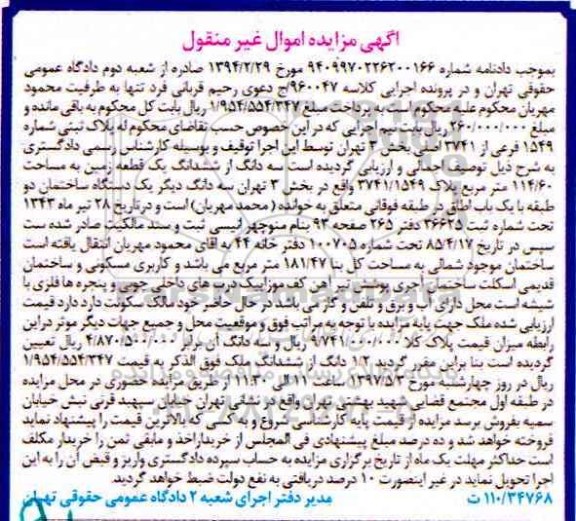 آگهی مزایده اموال غیر منقول
بموجب دادنامه شماره ۹۴۰۹۹۷۰۲۲۶۲۰۰۱۶۶ مورخ ۱۳۹۴/۲/۲۹ صادره از شعبه دوم دادگاه عمومی
حقوقی تهران و در پرونده اجرایی کلاسه ۹۶۰۰۴۷/ج دعوی رحیم قربانی فرد تنها به طرفیت محمود
مهربان محکوم علیه محکوم است به پرداخت مبلغ ۱/۹۵۴/۵۵۴/۳۴۷ ریال بابت کل محکوم به باقی مانده و
مبلغ ۲۶۰/۰۰۰/۰۰۰ ریال بابت نیم اجرایی که در این خصوص حسب تقاضای محکوم له پلاک ثبتی شماره
۱۵۴۹ فرعی از ۳۷۴۱ اصلی بخش ۳ تهران توسط این اجرا توقیف و بوسیله کارشناس رسمی دادگستری
به شرح ذیل توصیف اجمالی و ارزیابی گردیده است سه دانگ از ششدانگ یک قطعه زمین به مساحت
۱۱۴/۶۰ متر مربع پلاک ۳۷۴۱/۱۵۴۹ واقع در بخش ۳ تهران سه دانگ دیگر یک دستگاه ساختمان دو
طبقه با یک باب اطاق در طبقه فوقانی متعلق به خوانده (محمد مهربان) است و در تاریخ ۲۸ تیر ماه ۱۳۴۳
تحت شماره ثبت ۳۶۶۲۵ دفتر ۲۶۵ صفحه ۹۳ بنام منوچهر انیسی ثبت و سند مالکیت صادر شده ست
سپس در تاریخ ۸۵/۴/۱۷ تحت شماره ۱۰۰۷۰۵ دفتر خانه ۴۴ به آقای محمود مهربان انتقال یافته است
ساختمان موجود شمالی به مساحت کل بنا ۱۸۱/۴۷ متر مربع می باشد و کاربری مسکونی و ساختمان
قدیمی اسکلت ساختمان آجری پوشش تیر آهن کف موزاییک درب های داخلی چوبی و پنجره ها فلزی با
شیشه است محل دارای آب و برق و تلفن و گاز می باشد در حال حاضر خود مالک سکونت دارد دارد قیمت
ارزیابی شده ملک جهت پایه مزایده با توجه به مراتب فوق و موقعیت محل و جمیع جهات دیگر موثر در این
رابطه میزان قیمت پلاک کلا ۹/۷۴۱/۰۰۰/۰۰۰ ریال و سه دانگ آن برابر ۴/۸۷۰/۵۰۰/۰۰۰ ریال تعیین
گردیده است بنا براین مقرر گردید ۱/۲ دانگ از ششدانگ ملک فوق الذکر به قیمت ۱/۹۵۴/۵۵۴/۳۴۷
ریال در روز چهارشنبه مورخ ۱۳۹۷/۵/۳ ساعت ۱۱ الی ۱۱:۳۰ از طریق مزایده حضوری در محل مزایده
در طبقه اول مجتمع قضایی شهید بهشتی تهران واقع در نشانی تهران خیابان سپهبد قرنی نبش خیابان
سمیه بفروش برسد مزایده از قیمت پایه کارشناسی شروع و به کسی که بالاترین قیمت را پیشنهاد نماید
فروخته خواهد شد و ده درصد مبلغ پیشنهادی فی المجلس از خریدار اخذ و مابقی ثمن را خریدار مکلف
است حداکثر مهلت یک ماه از تاریخ برگزاری مزایده به حساب سپرده دادگستری واریز و قبض آن را به این
اجرا تحویل نماید در غیر اینصورت ۱۰ درصد دریافتی به نفع دولت ضبط خواهد گردید.
۱۱۰/۳۴۷۶۸ ت مدیر دفتر اجرای شعبه ۲ دادگاه عمومی حقوقی تهران